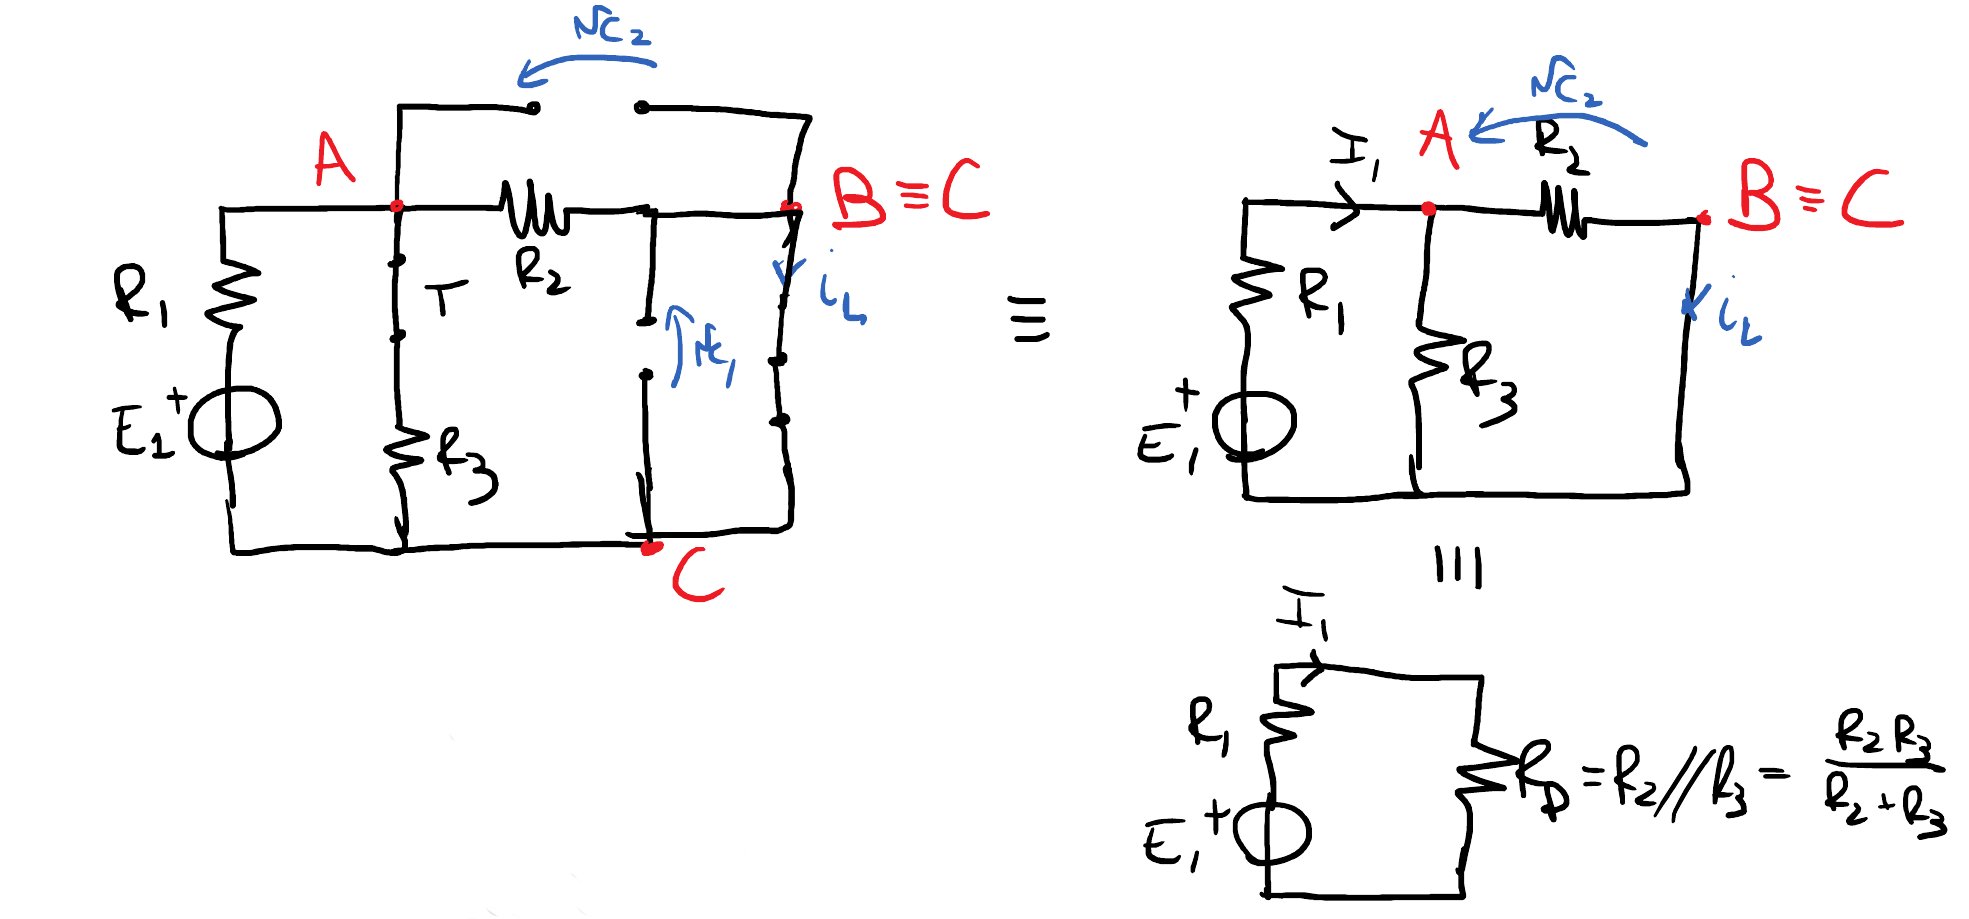 vC2
A
B ≡ C
R1
T
R2
iL
vC1
E1 +
R3
C
≡
vC2
I1
A
R2
B ≡ C
R1
iL
R3
+
E1
≡
I1
R1
RD = R2 // R3 = R2 R3 / R2 + R3
E1 +